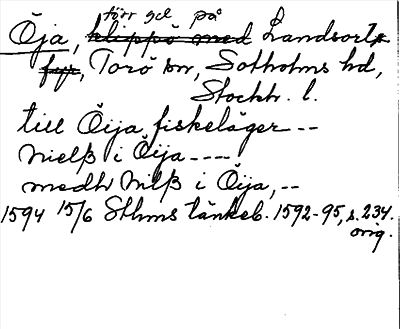 förr gel på
Öja, klippö med Landsorts
fyr, Torö sn, Sotholms hd,
Stockh. l.
till Öija fiskeläger --
Nielß i Öija ----
medh Nilß i Öija, --
1594 15/6 Sthms tänkeb. 1592-95, s. 234.
orig.